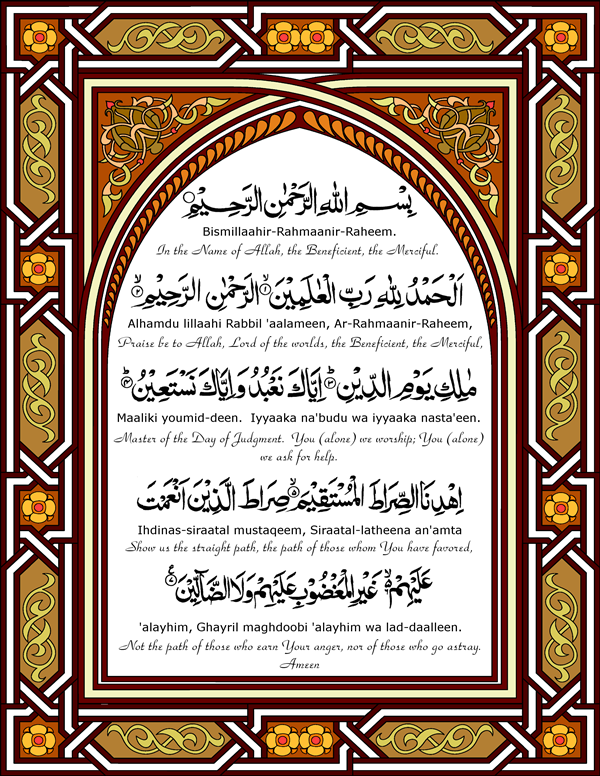 بِسْمِ اللهِ الرَّحْمٰنِ الرَّحِيْمِ
Bismillaahir-Rahmaanir-Raheem.
In the Name of Allah, the Beneficient, the Merciful.
اَلْحَمْدُ لِلّٰهِ رَبِّ الْعٰلَمِيْنَ ۙ۱ الرَّحْمٰنِ الرَّحِيْمِ ۙ۲
Alhamdu lillaahi Rabbil 'aalameen, Ar-Rahmaanir-Raheem,
Praise be to Allah, Lord of the worlds, the Beneficient, the Merciful,
مٰلِكِ يَوْمِ الدِّيْنِ ۳ اِيَّاكَ نَعْبُدُ وَاِيَّاكَ نَسْتَعِيْنُ ۴
Maaliki youmid-deen.  Iyyaaka na'budu wa iyyaaka nasta'een.
Master of the Day of Judgment.  You (alone) we worship; You (alone)
we ask for help.
اِهْدِنَا الصِّرَاطَ الْمُسْتَقِيْمَ ۵ صِرَاطَ الَّذِيْنَ اَنْعَمْتَ
Ihdinas-siraatal mustaqeem, Siraatal-latheena an'amta
Show us the straight path, the path of those whom You have favored,
عَلَيْهِمْ ۶ غَيْرِ الْمَغْضُوْبِ عَلَيْهِمْ وَلَا الضَّآلِّيْنَ ۷
'alayhim, Ghayril maghdoobi 'alayhim wa lad-daalleen.
Not the path of those who earn Your anger, nor of those who go astray.
Ameen